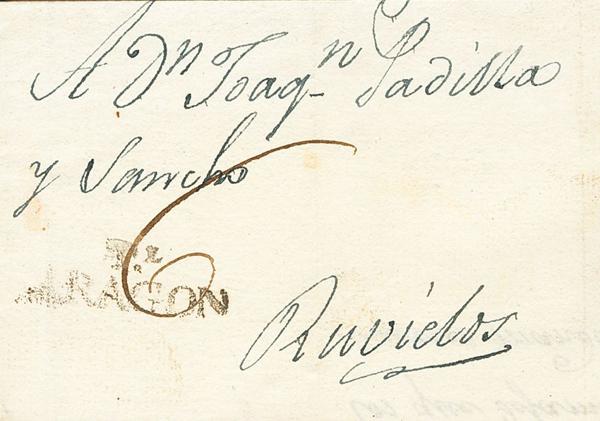 A Dⁿ Joaqⁿ Padilla
y Sancho
6
ARAGON
Ruvielos